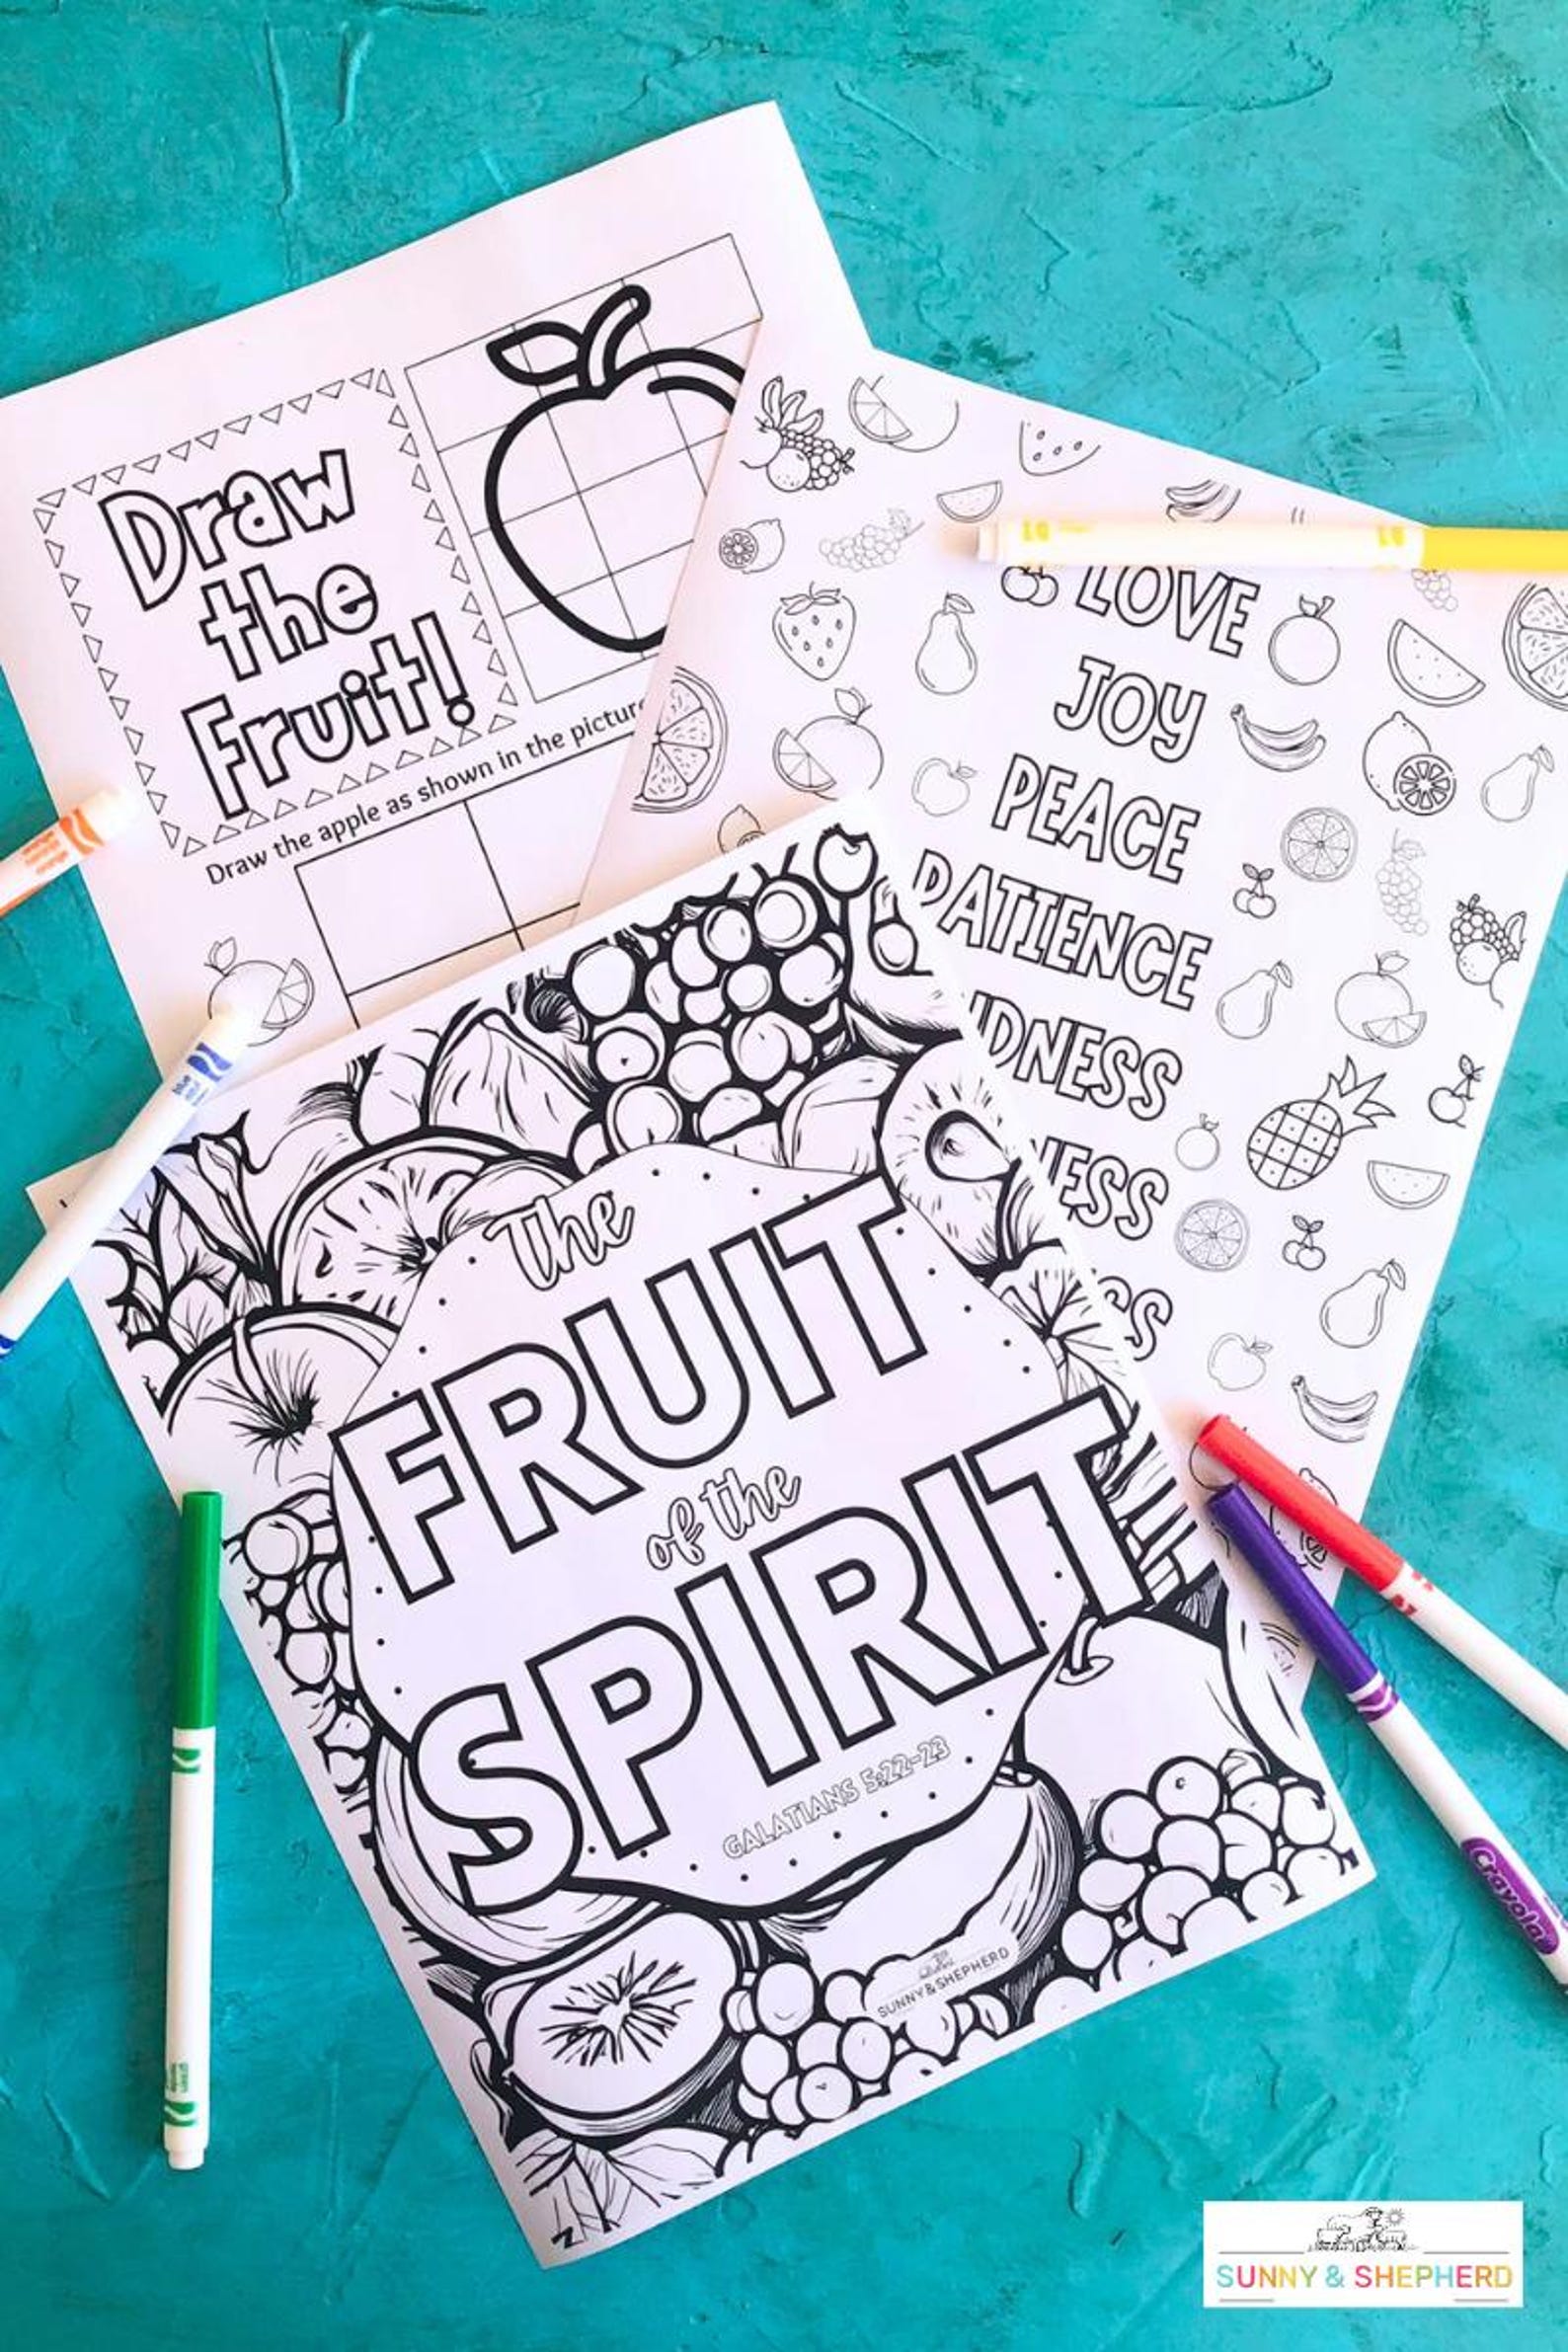 Draw
the
Fruit!
Draw the apple as shown in the picture
LOVE
JOY
PEACE
PATIENCE
The
FRUIT
of the
SPIRIT
GALATIANS 5:22-23
SUNNY & SHEPHERD
Crayola
SUNNY & SHEPHERD